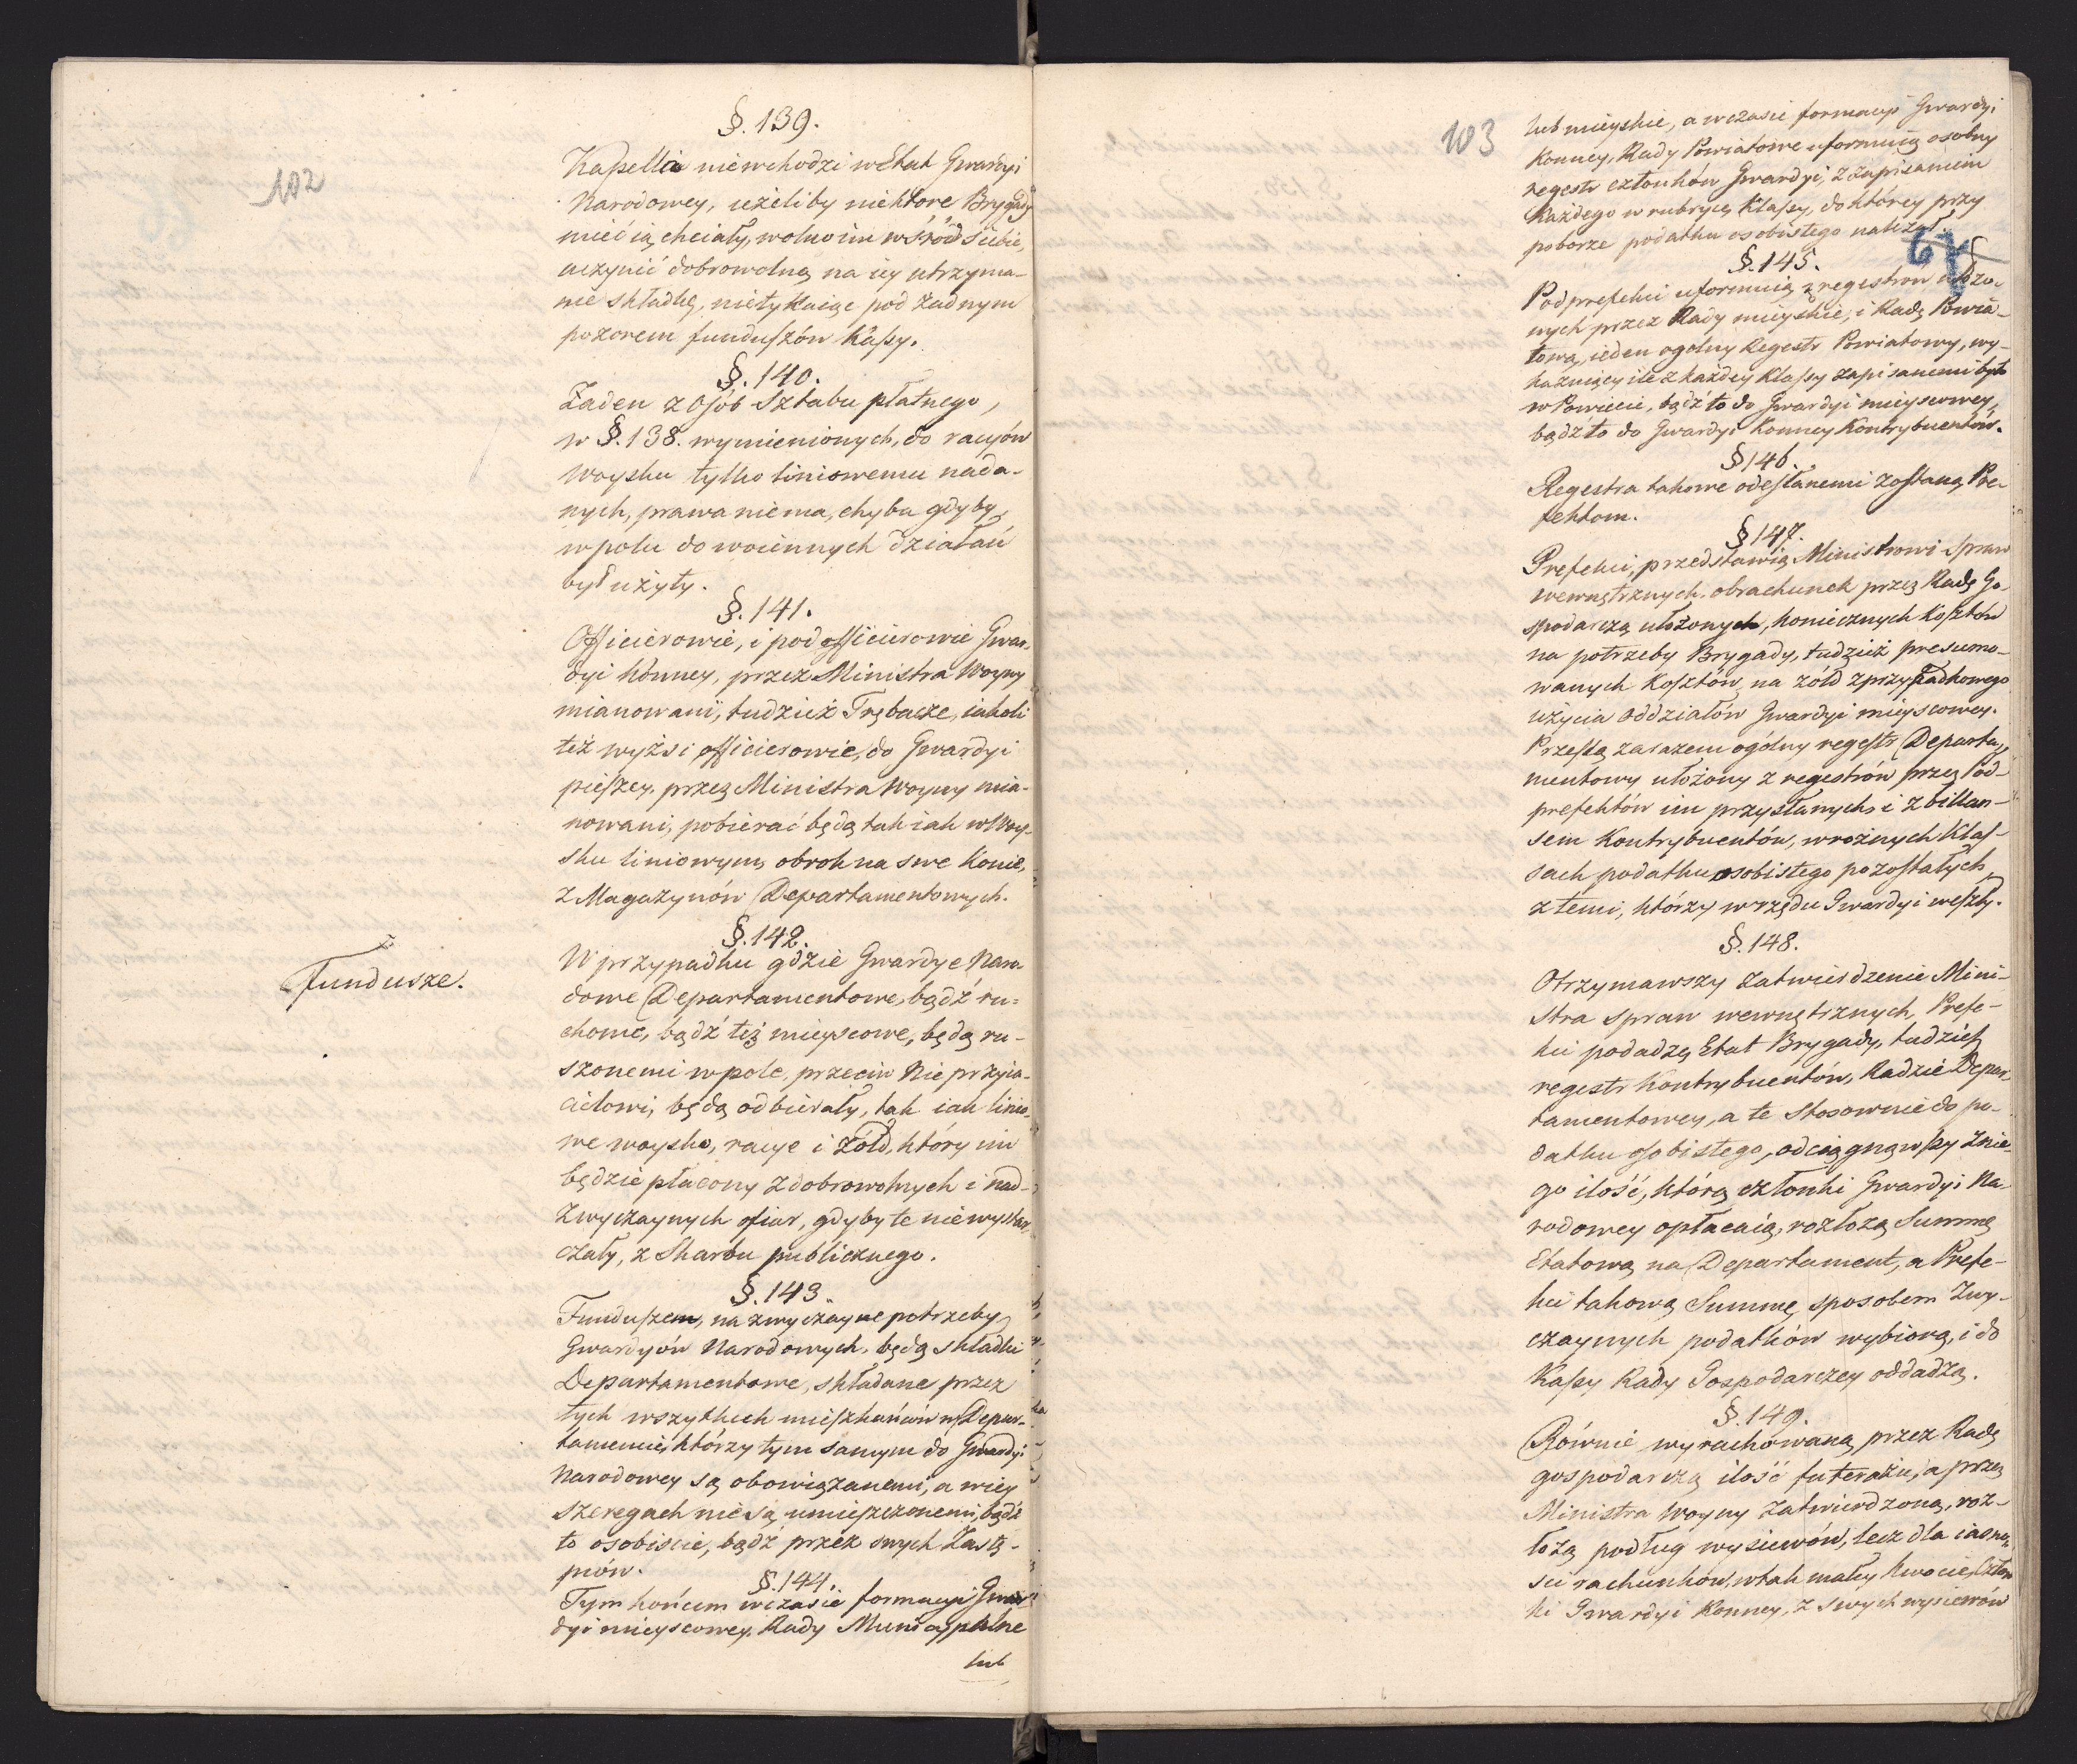 102
§. 139.
Kapellia niewchodzi w Etat Gwardyi
Narodowey, ieżeliby niektore Brygady
mieć ią chciały, wolno im wśród siebie,
uczynić dobrowolną na iey utrzyma-
nie składkę, nietykaiąc pod żadnym
pozorem funduszów Kassy.
§. 140.
Żaden z Osób Sztabu płatnego,
w §. 138. wymienionych, do racyów
Woysku tylko liniowemu nada-
nych, prawa niema, chyba gdyby
w polu do woiennych działań
był użyty.
§. 141.
Officierowie, i pod officierowie Gwar-
dyi konney, przez Ministra Woyny
mianowani, tudzież Trębacze, iakoli
też wyżsi officierowie, do Gwardyi
pieszey, przez Ministra Woyny mia-
nowani, pobierać będą tak iak w Woy-
sku liniowym, obrok na swe Konie,
z Magazynów Departamentowych.
§. 142.
Fundusze.
W przypadku gdzie Gwardye Naro-
dowe Departamentowe, bądź ru-
chome, bądź też mieyscowe, będą ru-
szonemi w pole, przeciw Nieprzyia-
cielowi, będą odbierały, tak iak linio-
we woysko, racye i żółd, który im
będzie płacony z dobrowolnych i nad-
zwyczaynych ofiar, gdyby te niewystar-
czały, z Skarbu publicznego.
§. 143.
Funduszem, na zwyczayne potrzeby
Gwardyów Narodowych, będą składki
Departamentowe, składane przez
tych wszystkich mieszkańców w Depar-
tamencie, którzy tym samym do Gwardyi
Narodowey są obowiązanemi, a w iey
szeregach nie są umieszczonemi, bądź
to osobiście, bądź przez swych Zastę-
pców.
§. 144.
Tym końcem w czasie formacyi Gwar-
dyi mieyscowey, Rady Municypalne
lub
103
lub mieyskie, a w czasie formacyi Gwardyi
Konney, Rady Powiatowe uformuią osobny
regestr członków Gwardyi, z zapisaniem
każdego w rubrykę Klassy, do którey przy
poborze podatku osobistego należał.
§. 145.
Podprefekci uformuią z regestrów ułożo-
nych przez Rady mieyskie, i Radę Powia-
tową, ieden ogolny Regestr Powiatowy, wy-
kazuiący ile z każdey Klassy zapisanemi było
w Powiecie, bądź to do Gwardyi mieyscowey,
bądź to do Gwardyi Konney Kontrybuentów.
§ 146.
Regestra takowe odesłanemi zostaną Pre-
fektom.
§ 147.
Prefekci, przedstawią Ministrowi Spraw
wewnętrznych, obrachunek przez Radę Go-
spodarczą ułożonych, koniecznych Kosztów
na potrzeby Brygady, tudzież presumo-
wanych Kosztów, na żółd z przypadkowego
użycia oddziałów Gwardyi mieyscowey.
Prześlą zarazem ogólny regestr Departa-
mentowy ułożony z regestrów przez Pod-
prefektów im przysłanych, i z billan-
sem Kontrybuentów, w rożnych Klas-
sach podatku osobistego pozostałych,
z temi, którzy w rzędu Gwardyi weszły.
§. 148.
Otrzymawszy zatwierdzenie Mini-
stra spraw wewnętrznych, Prefe-
kci podadzą Etat Brygady, tudzież
regestr Kontrybuentów, Radzie Depar-
tamentowey, a te stosownie do po-
datku osobistego, odciągnąwszy znie-
go ilość, którą członki Gwardyi Na-
rodowey opłacaią, rozłożą Summę
Etatową na Departament, a Prefe-
kci takową Summę, sposobem Zwy-
czaynych podatków wybiorą, i do
Kassy Rady Gospodarczey oddadzą.
§. 149.
Równie wyrachowaną przez Radę
gospodarczą ilość futerażu, a przez
Ministra Woyny zatwierdzoną, roz-
łożą podług wysiewów, lecz dla iasno-
ści rachunków, w tak małey kwocie, Człon-
ki Gwardyi Konney, z swych wysiewów